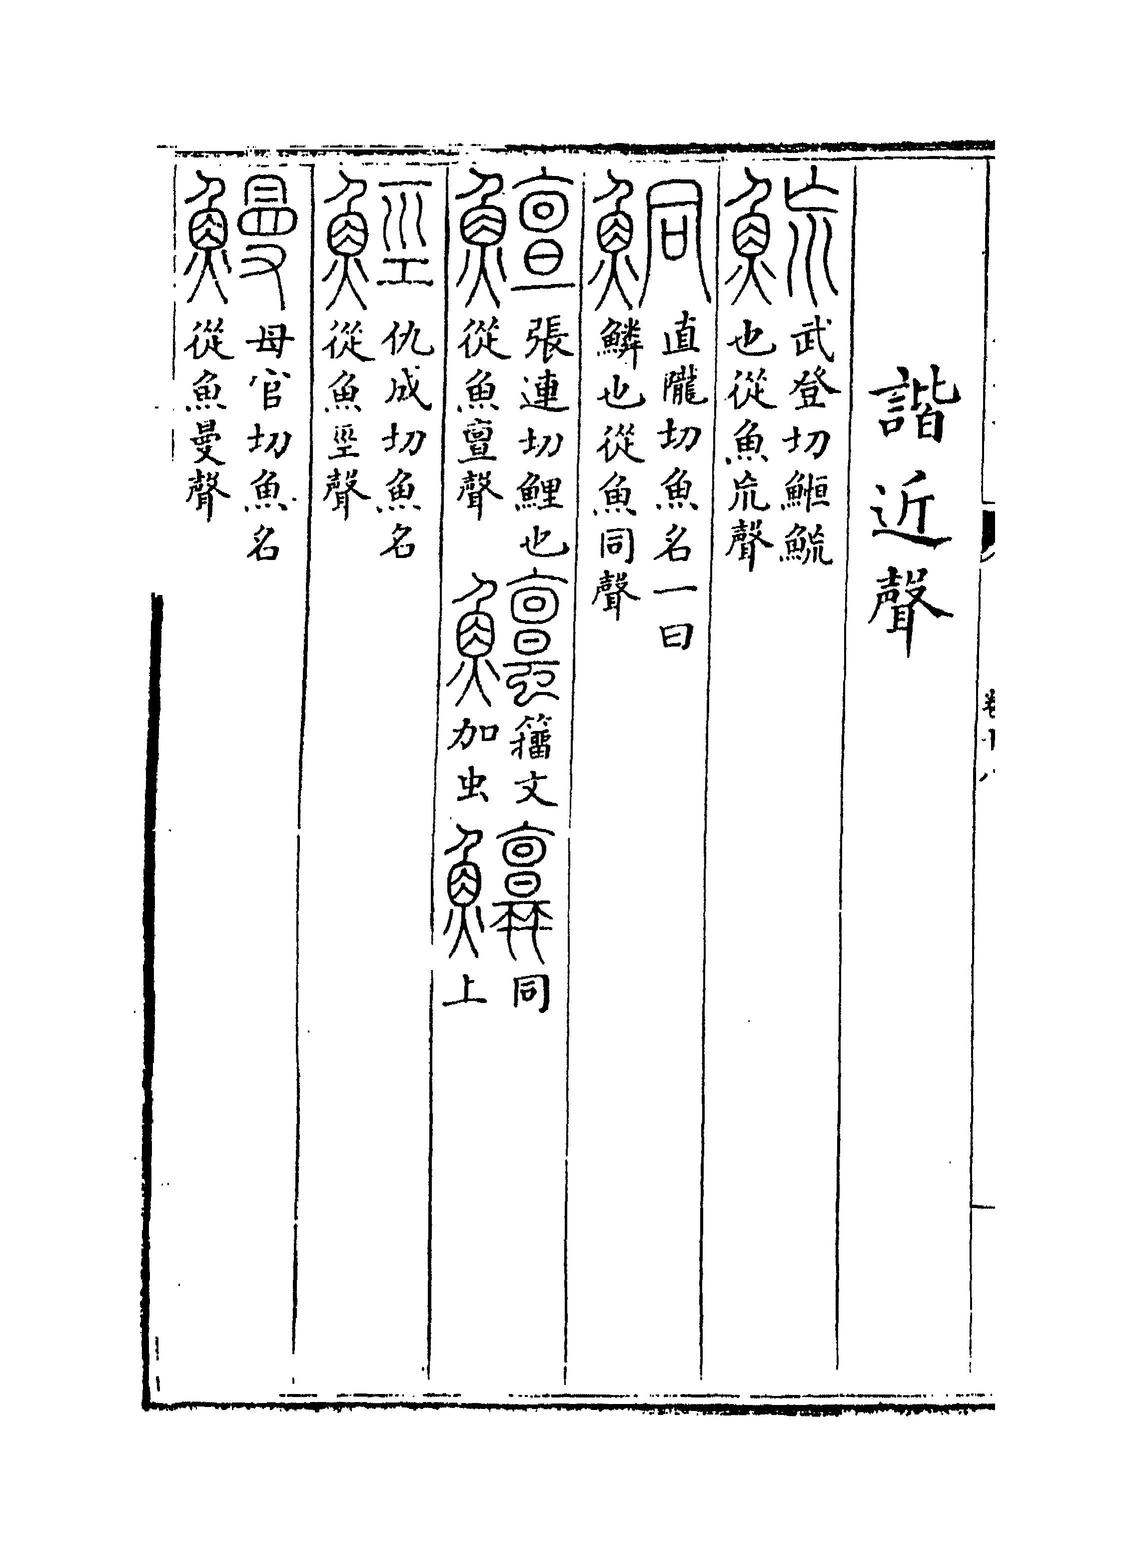 諧近聲
䲛 武登切䱭䲛也從魚㐬聲
鮦 直隴切魚名一曰鱗也從魚同聲
鱣 張連切鯉也從魚亶聲 籀文加虫 同上
仇成切魚名從魚巠聲
鰻 母官切魚名從魚曼聲
卷十八